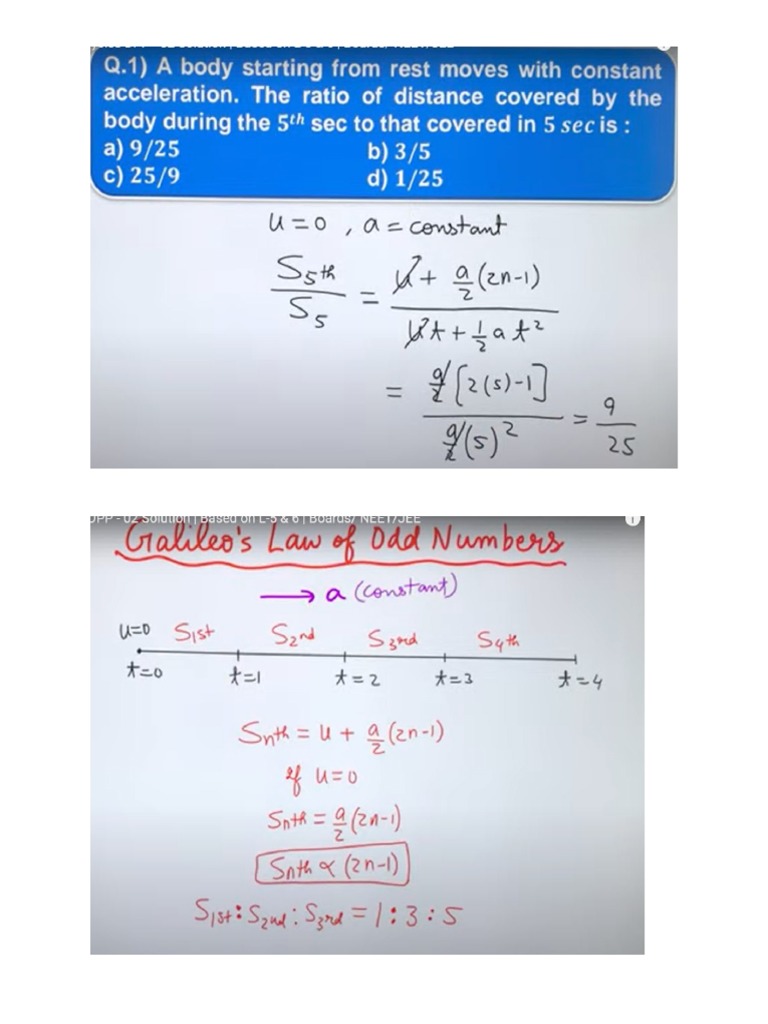 Q.1) A body starting from rest moves with constant
acceleration. The ratio of distance covered by the
body during the 5ᵗʰ sec to that covered in 5 sec is :
a) 9/25 b) 3/5
c) 25/9 d) 1/25
u = 0 , a = constant
S₅ₜₕ / S₅ = u + a/2 (2n-1) / ut + 1/2 a t²
= a/2 [2(5)-1] / a/2 (5)² = 9/25
DPP - 02 Solution | Based on L-5 & 6 | Boards/ NEET/JEE
Galileo's Law of Odd Numbers
→ a (constant)
u=0 S1st S2nd S3rd S4th
t=0 t=1 t=2 t=3 t=4
Snth = u + a/2 (2n-1)
if u=0
Snth = a/2 (2n-1)
Snth ∝ (2n-1)
S1st : S2nd : S3rd = 1 : 3 : 5